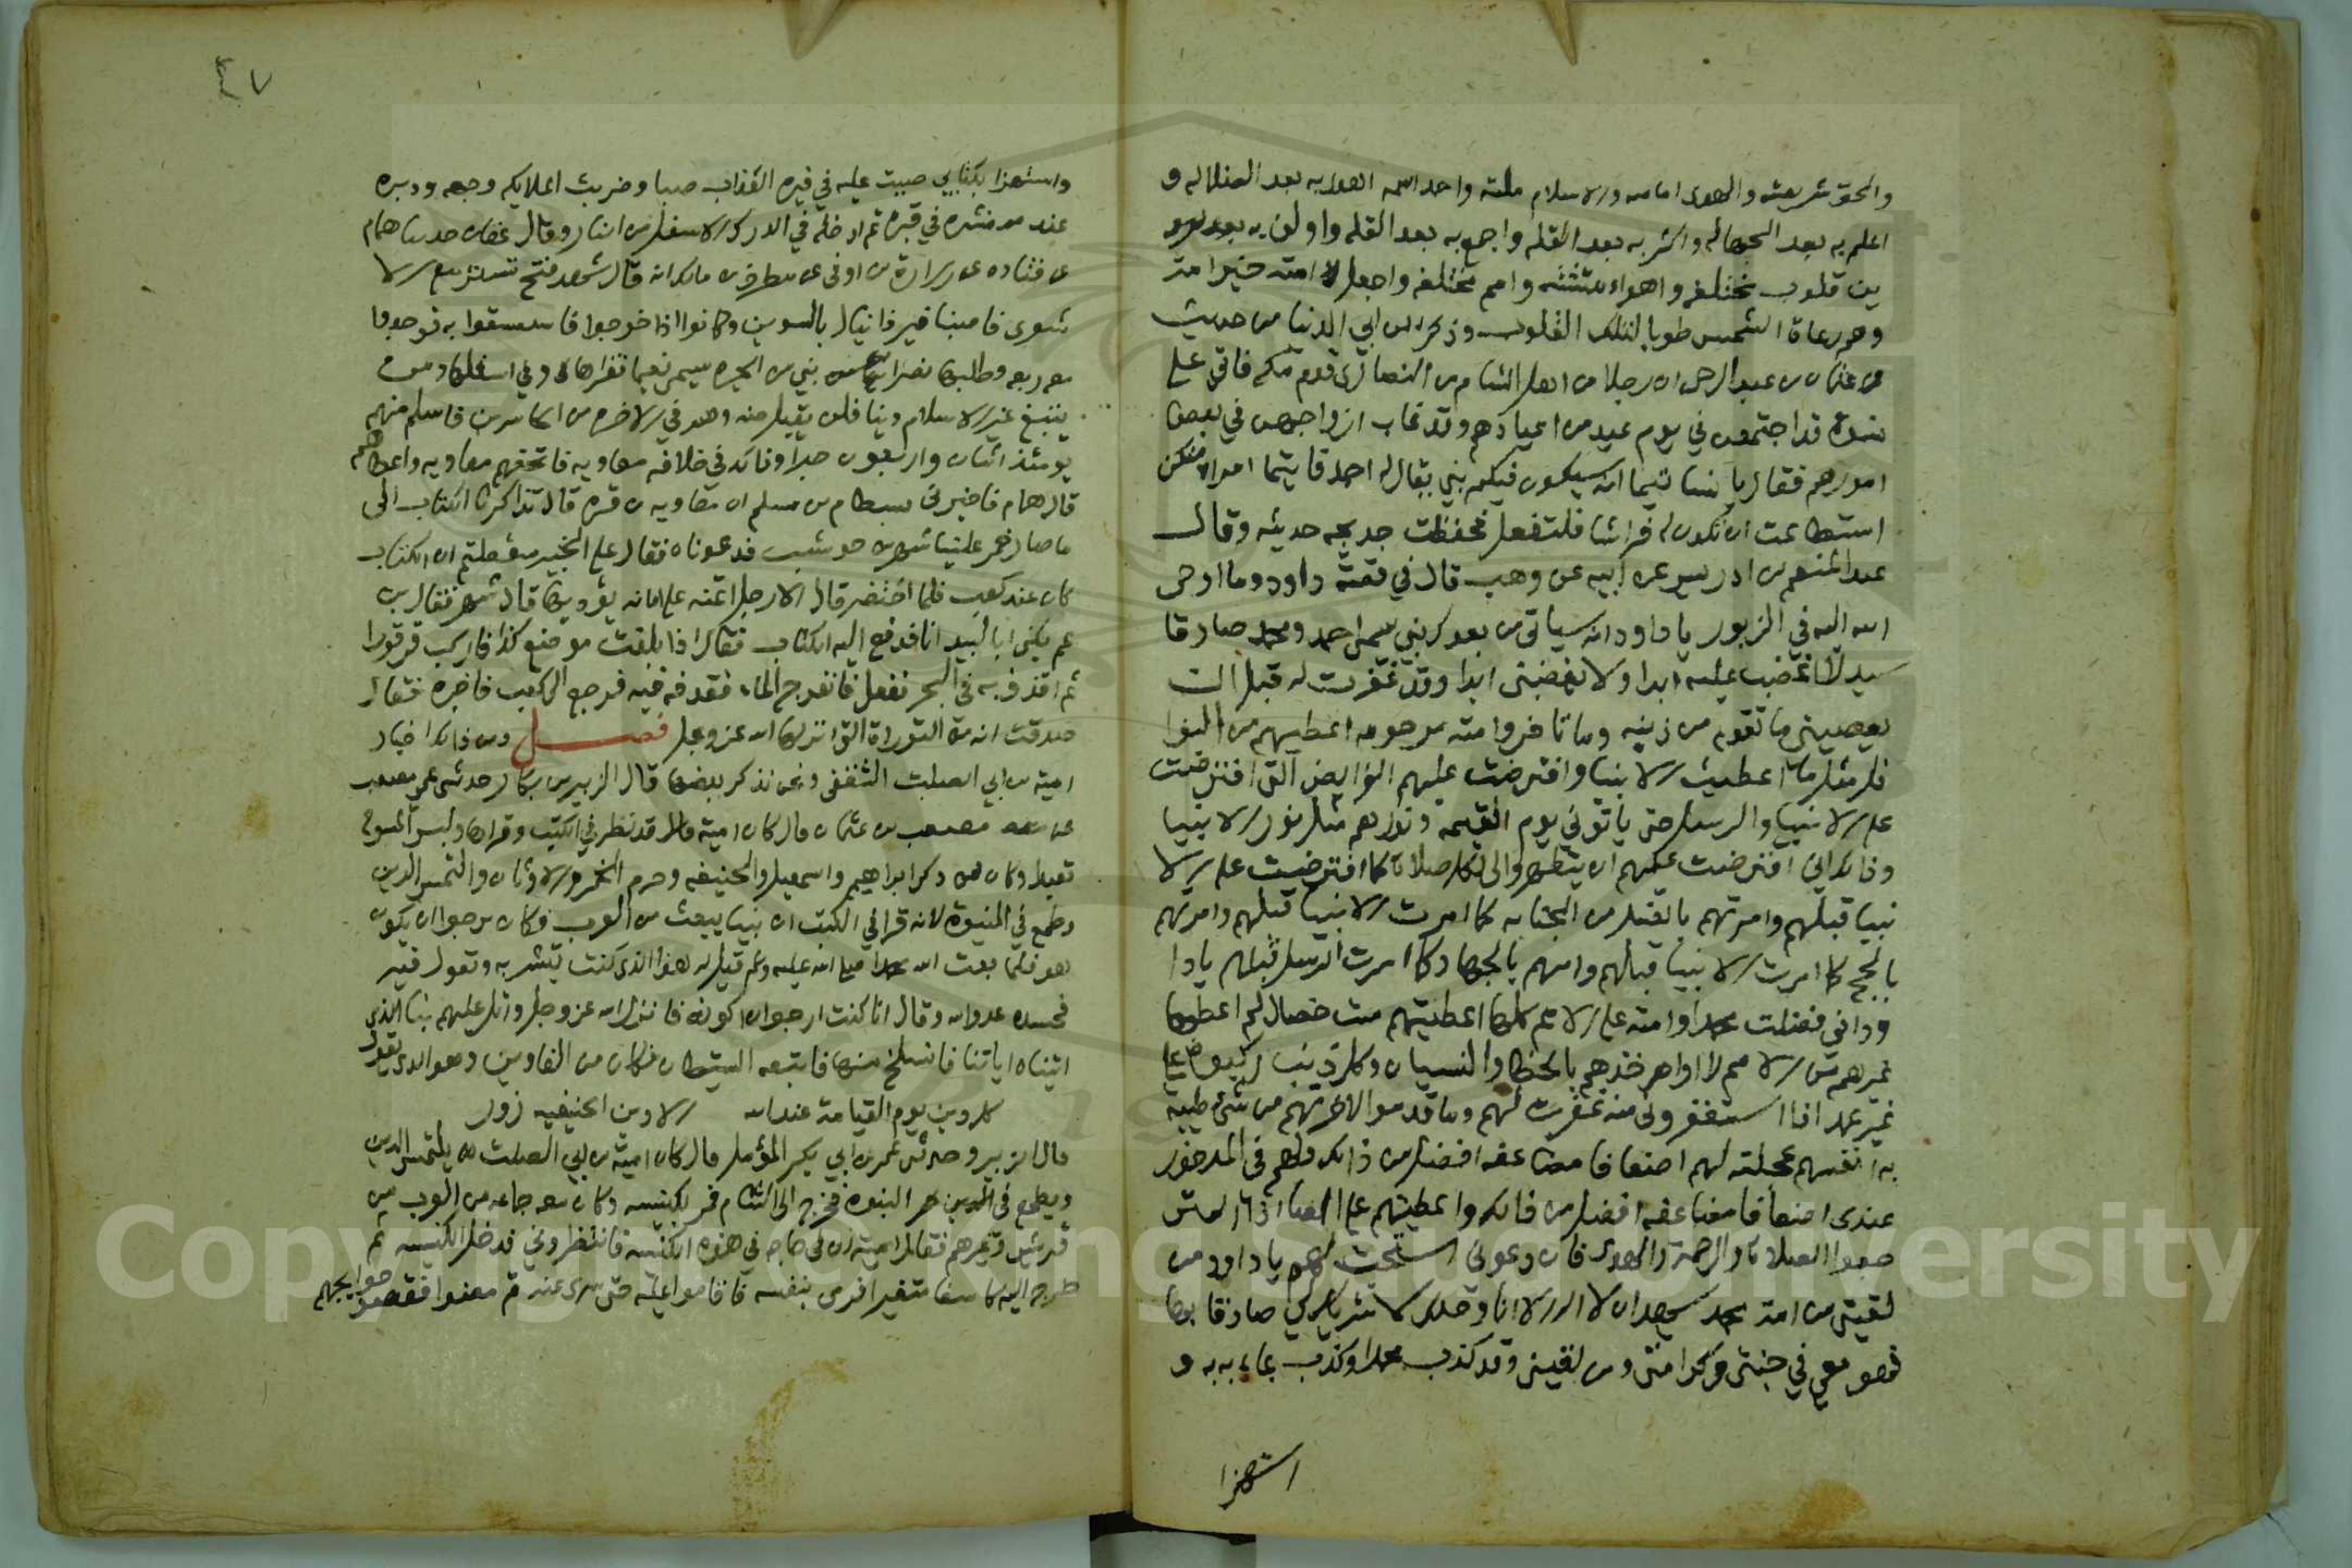 والحق شريعته والهدى امامه والاسلام ملته واحمد اسمه اهدى به بعد الضلاله و
اعلم به بعد الجهاله واكثر به بعد القله واجمع به بعد القله واولف به بعد
بين قلوب مختلفه واهواء متشتته وامم مختلفه واجعل امته خير امة
وهم رعاة الشمس طوبا لتلك القلوب وذكر ابن ابي الدنيا من حديث
عن عثمان بن عبد الرحمن ان رجلا من اهل الشام من النصارى قدم مكه فاتى على
نسوة قد اجتمعن في يوم عيد من اعيادهم وقد غاب ازواجهن في بعض
امورهم فقال يا نسا تيما انه سيكون فيكم نبي يقال له احمد فايتما امراة منكن
استطاعت ان تكون له فراشا فلتفعل فحفظت خديجه حديثه وقال
عبد المنعم بن ادريس عن ابيه عن وهب قال في قصة داود وما اوحى
الله اليه في الزبور يا داود انه سياتي من بعدك نبي يسمى احمد ومحمد صادقا
سيدا لا اغضب عليه ابدا ولا يغضبني ابدا وقد غفرت له قبل ان
يعصيني ما تقدم من ذنبه وما تاخر وامته مرحومه اعطيهم من النوا
فل مثل ما اعطيت الانبيا وافترضت عليهم الفرايض التي افترضت
على الانبيا والرسل حتى ياتوني يوم القيمه ونورهم مثل نور الانبيا
وذلك اني افترضت عليهم ان يتطهروا لي لكل صلاة كما افترضت على الا
نبيا قبلهم وامرتهم بالغسل من الجنابه كما امرت الانبيا قبلهم وامرتهم
بالحج كما امرت الانبيا قبلهم وامرتهم بالجهاد كما امرت الرسل قبلهم يا دا
ود اني فضلت محمدا وامته على الامم كلها اعطيتهم ست خصال لم اعطها
غيرهم من الامم لا اواخذهم بالخطا والنسيان وكل ذنب ركبوه على
غير عمد اذا استغفروني منه غفرت لهم وما قدموا لاخرتهم من شي طيبة
به انفسهم عجلته لهم اضعافا مضاعفه افضل من ذلك ولهم في المدخور
عندي اضعافا مضاعفه افضل من ذلك واعطيتهم على المصا
الصلاة والرحمة والهدى فان دعوني استجبت لهم يا داود من
لقيني من امة محمد يشهد ان لا اله الا انا وحدي لا شريك لي صادقا بها
فهو معي في جنتي وكرامتي ومن لقيني وقد كذب محمدا وكذب بما جاء به و
استهزا
٤٧
واستهزا بكتابي صببت عليه في قبره العذاب صبا وضربت الملايكه وجهه ودبره
عند منشره في قبره ثم ادخله في الدرك الاسفل من النار وقال عفان حدثنا همام
عن قتاده عن زرارة بن اوفى عن مطرف بن مالك انه قال شهد فتح تستر مع الا
شعرى فاصبنا قبر دانيال بالسوس وكانوا اذا خرجوا فاستسقوا به فوجدوا
معه ربعه وطلبها نصراني من الحيره يسمى نعيما فقراها وفي اسفلها ومن
يبتغ غير الاسلام دينا فلن يقبل منه وهو في الاخره من الخاسرين فاسلم منهم
يومئذ اثنان واربعون حبرا وذلك في خلافة معاويه فاتحفهم معاويه واعطاهم
قال همام فاخبرني بسطام بن مسلم ان معاويه بن قره قال تذاكرنا الكتاب الى
ما صار فمر علينا شهر بن حوشب فدعوناه فقال على الخبير سقطتم ان الكتاب
كان عند كعب فلما احتضر قال الا رجل ائتمنه على امانه يؤديها قال شهر فقال ابن
عم يكنى ابا لبيد انا فدفع اليه الكتاب فقال اذا بلغت موضع كذا فاركب قرقورا
ثم اقذف به في البحر ففعل فانفرج الماء فقذفه فيه فرجع الى كعب فاخبره فقال
صدقت انه من التوراة التي انزلها الله عز وجل فصل ومن ذلك اخبار
امية بن ابي الصلت الثقفي ونحن نذكر بعضها قال الزبير بن بكار حدثني عمي مصعب
عن مصعب بن عثمان قال كان امية قد نظر في الكتب وقراها ولبس المسوح
تعبدا وكان ممن ذكر ابراهيم واسمعيل والحنيفه وحرم الخمر والاوثان والتمس الدين
وطمع في النبوة لانه قرا في الكتب ان نبيا يبعث من العرب فكان يرجوا ان يكون
هو فلما بعث الله محمدا صلى الله عليه وسلم قيل له هذا الذي كنت تبشر به وتقول فيه
فحسده عدو الله وقال انا كنت ارجوا ان اكونه فانزل الله عز وجل واتل عليهم نبا الذي
اتيناه اياتنا فانسلخ منها فاتبعه الشيطان فكان من الغاوين وهو الذي يقول
كل دين يوم القيامة عند الله الا دين الحنيفيه زور
قال الزبير وحدثني عمر بن ابي بكر المؤملي قال كان امية بن ابي الصلت يلتمس الدين
ويطمع في النبوة فخرج الى الشام فمر بكنيسه وكان معه جماعه من العرب من
قريش وغيرهم فقال امية ان لي حاجه في هذه الكنيسه فانتظروني فدخل الكنيسه ثم
خرج اليهم كاسفا متغيرا فرمى بنفسه فاقاموا عليه حتى سري عنه ثم مضوا فقضوا حوايجهم